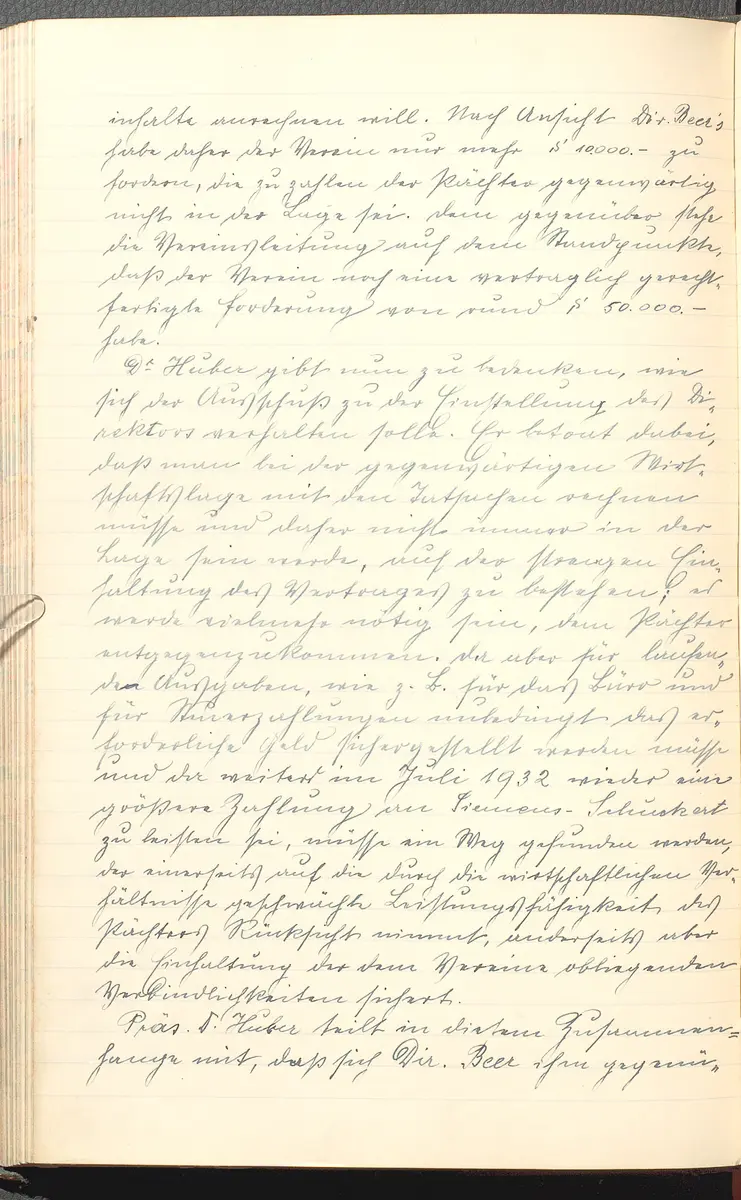 inhalte anrechnen will. Nach Ansicht Dir. Beer's
habe daher der Verein nur mehr S 10.000.- zu
fordern, die zu zahlen der Pächter gegenwärtig
nicht in der Lage sei. Dem gegenüber stehe
die Vereinsleitung auf dem Standpunkte,
daß der Verein noch eine vertraglich gerecht-
fertigte Forderung von rund S 50.000.-
habe.
Dr Huber gibt nun zu bedenken, wie
sich der Ausschuß zu der Einstellung des Di-
rektors verhalten solle. Er betont dabei,
daß man bei der gegenwärtigen Wirt-
schaftslage mit den Tatsachen rechnen
müsse und daher nicht immer in der
Lage sein werde, auf der strengen Ein-
haltung des Vertrages zu bestehen; es
werde vielmehr nötig sein, dem Pächter
entgegenzukommen. Da aber für laufen-
den Ausgaben, wie z. B. für das Büro und
für Steuerzahlungen unbedingt das er-
forderliche Geld sichergestellt werden müsse
und da weiters im Juli 1932 wieder eine
größere Zahlung an Siemens-Schuckert
zu leisten sei, müsse ein Weg gefunden werden,
der einerseits auf die durch die wirtschaftlichen Ver-
hältnisse geschwächte Leistungsfähigkeit des
Pächters Rücksicht nimmt, anderseits aber
die Einhaltung der dem Vereine obliegenden
Verbindlichkeiten sichert.
Präs. Dr. Huber teilt in diesem Zusammen=
hange mit, daß sich Dir. Beer ihm gegenü-